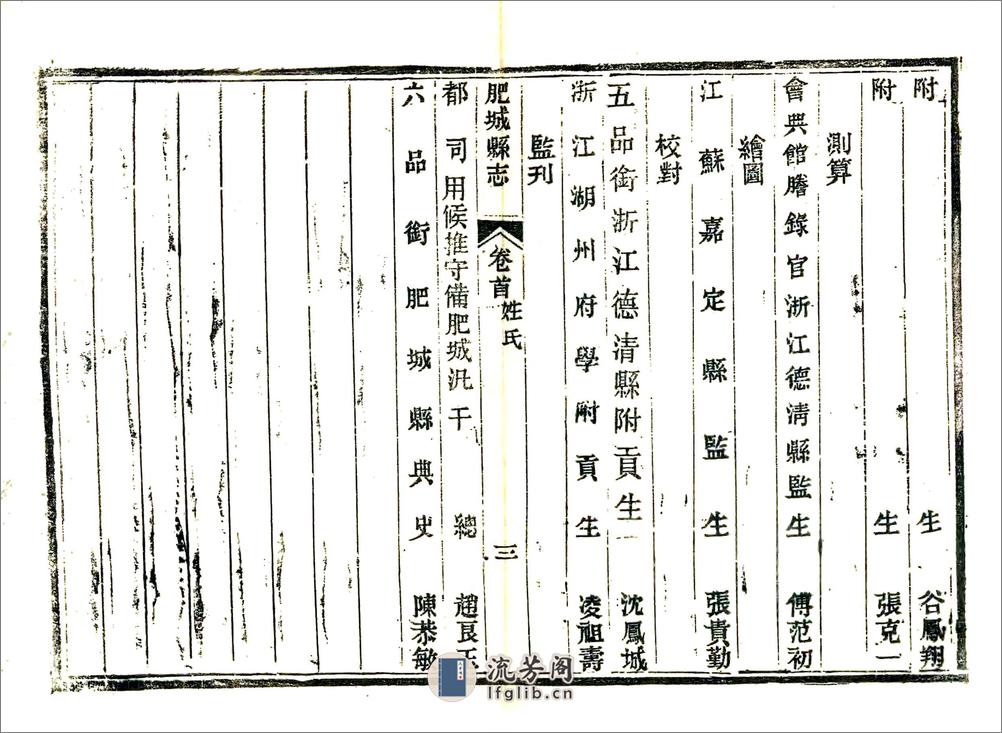 附生谷鳳翔
附生張克一
測算
會典館謄錄官浙江德清縣監生傅范初
繪圖
江蘇嘉定縣監生張貴勤
校對
五品銜浙江德清縣附貢生沈鳳城
浙江湖州府學附貢生凌祖壽
監刊
肥城縣志 卷首 姓氏 三
都司用候推守備肥城汛千總趙良玉
六品銜肥城縣典史陳恭敏
流芳阁
lfglib.cn